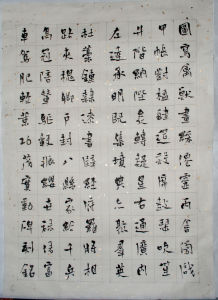 圖寫禽獸畫綵僊靈丙舍傍啟
甲帳對楹肆筵設席鼓瑟吹笙
升階納陛弁轉疑星右通廣內
左達承明既集墳典亦聚羣英
杜藁鍾隸漆書壁經府羅將相
路夾槐卿戶封八縣家給千兵
高冠陪輦驅轂振纓世祿侈富
車駕肥輕策功茂實勒碑刻銘